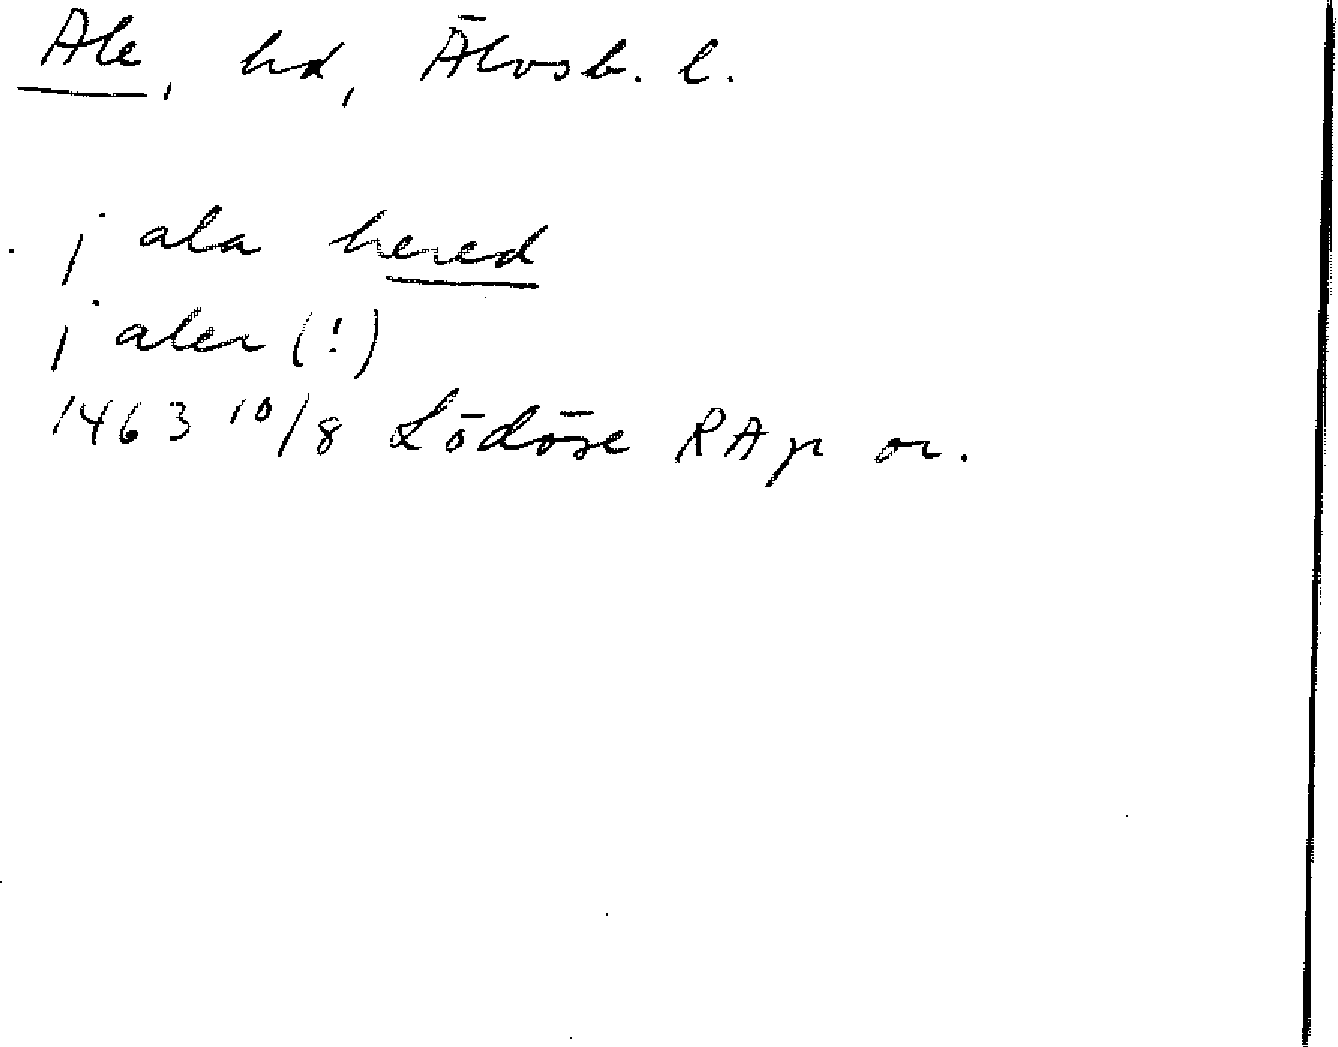 Ale, hd, Älvsb. l.
j ala hered
j aler (!)
1463 10/8 Lödöse RAp or.